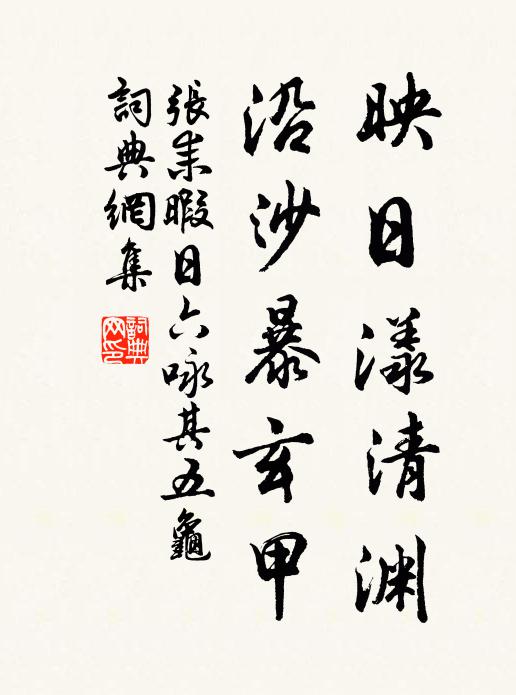 映日漾清淵
沿沙暴玄甲
張耒暇日六咏其五龜
詞典網集
詞典网印